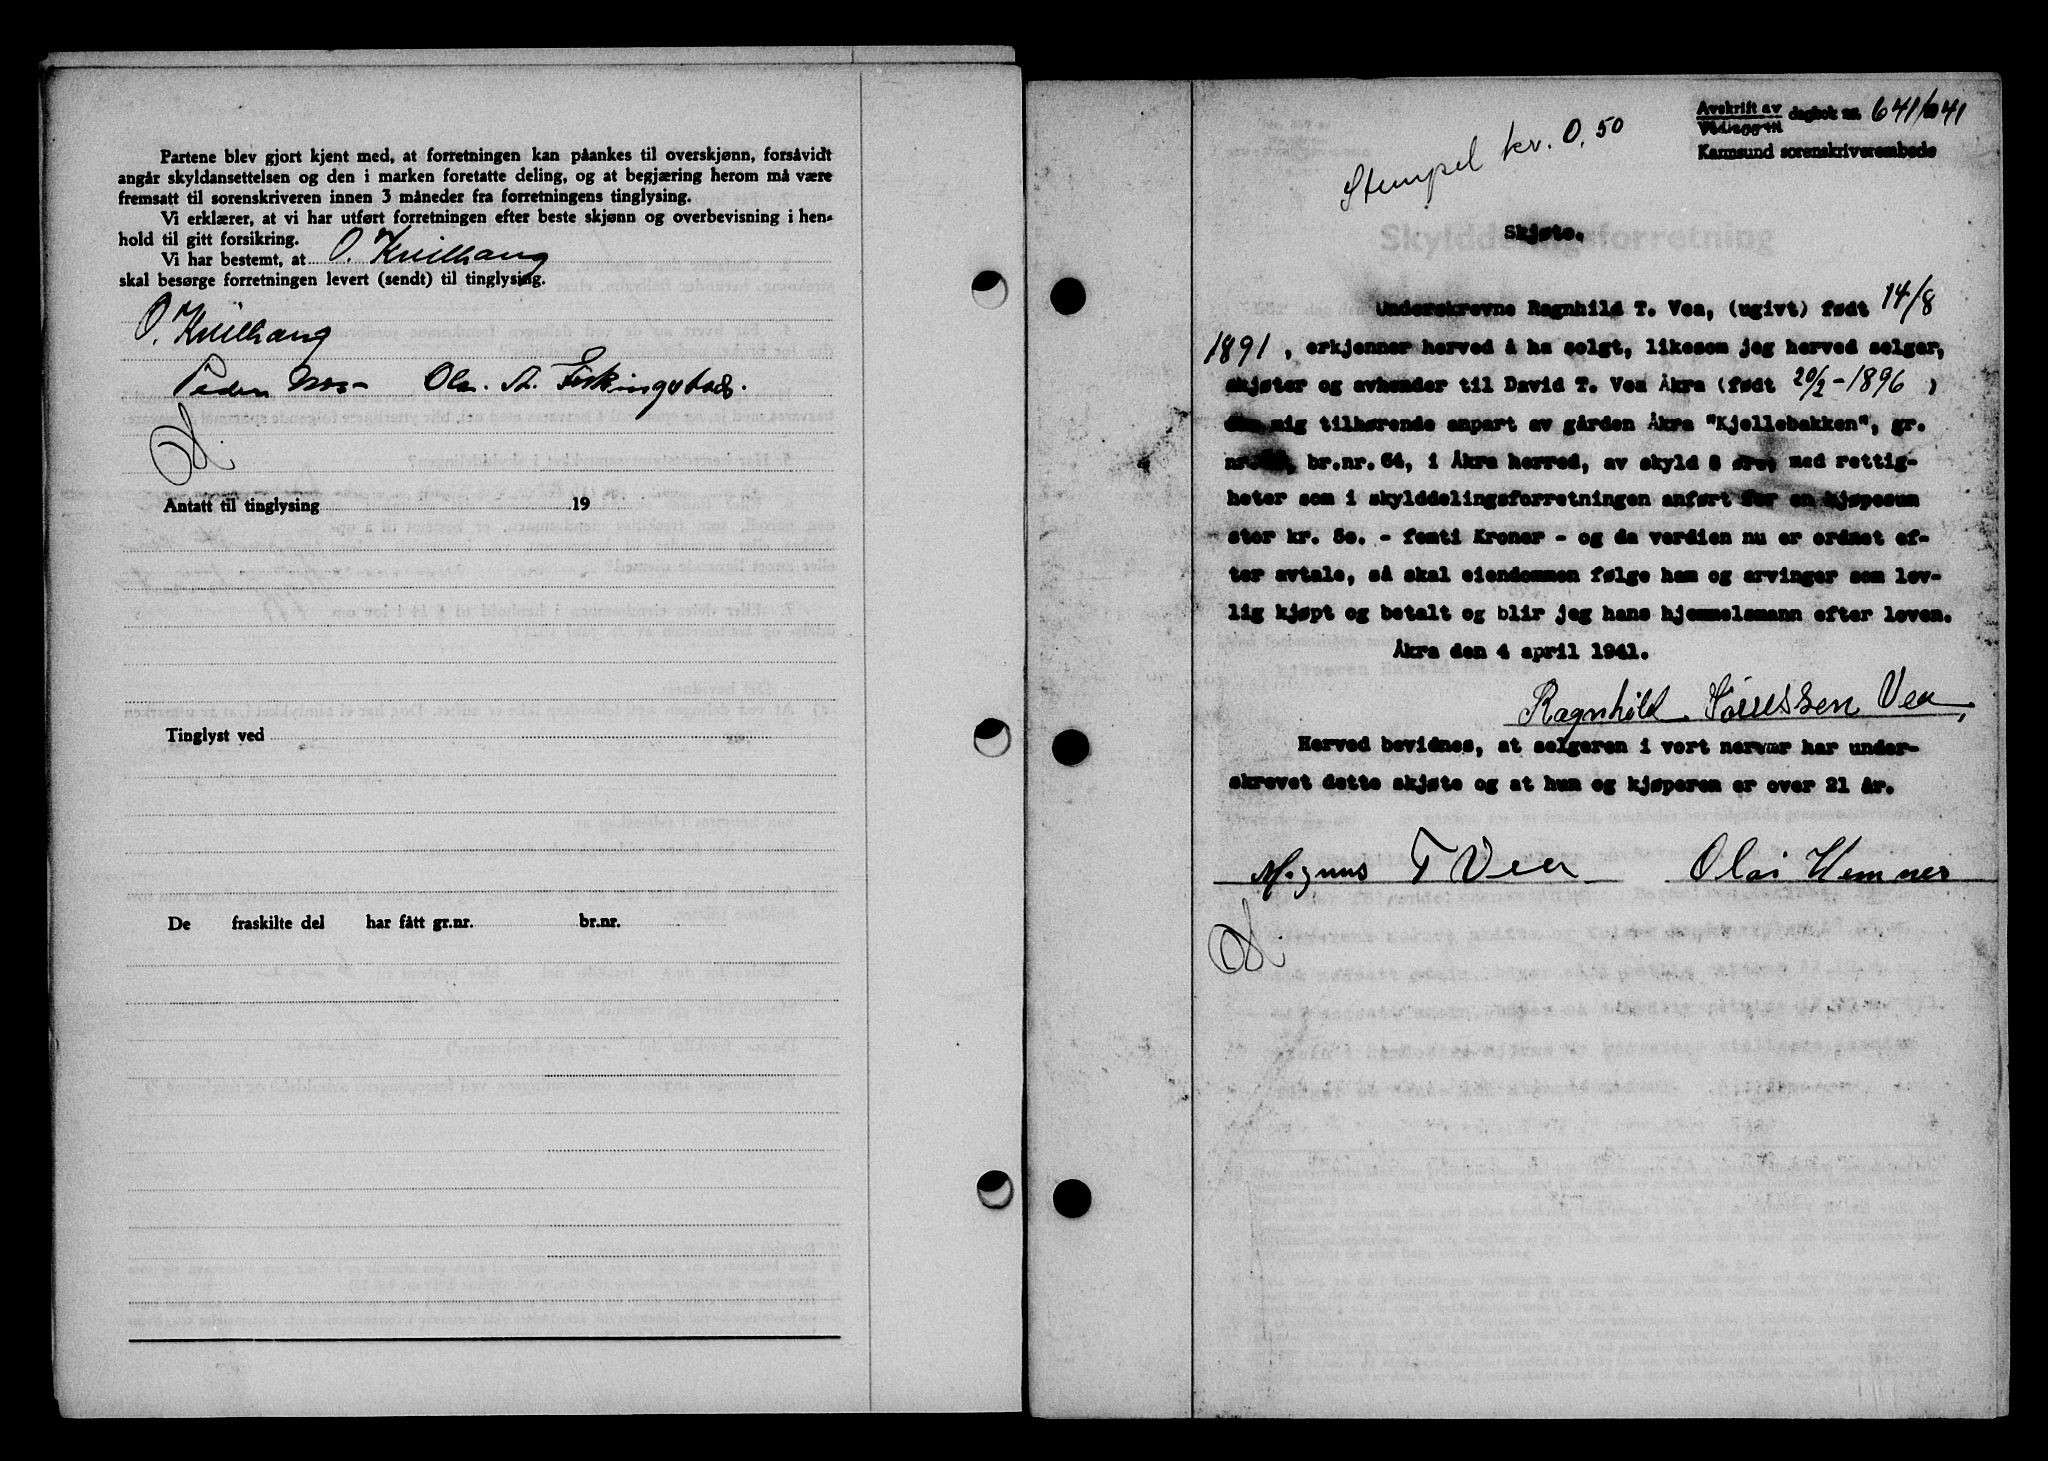 Partene blev gjort kjent med, at forretningen kan påankes til overskjønn, forsåvidt
angår skyldansettelsen og den i marken foretatte deling, og at begjæring herom må være
fremsatt til sorenskriveren innen 3 måneder fra forretningens tinglysing.
Vi erklærer, at vi har utført forretningen efter beste skjønn og overbevisning i hen-
hold til gitt forsikring.
Vi har bestemt, at O. Kvilhaug
skal besørge forretningen levert (sendt) til tinglysing.
O. Kvilhaug
Peder Nes Ole A. Ferkingstad.
Antatt til tinglysing 19
Tinglyst ved
De fraskilte del har fått gr.nr. br.nr.
Avskrift av
dagbok nr. 641/1941
Karmsund sorenskriverembede
Stempel kr. 0,50
Skjøte.
Underskrevne Ragnhild T. Vea, (ugivt) født 14/8
1891, erkjenner herved å ha solgt, likesom jeg herved selger,
skjøter og avhender til David T. Vea Åkra (født 20/2-1896)
den mig tilhørende anpart av gården Åkra "Kjellebakken", gr.
nr. br.nr. 64, i Åkra herred, av skyld 8 øre, med rettig-
heter som i skylddelingsforretningen anført for en kjøpesum
stor kr. 50. - femti Kroner - og da verdien nu er ordnet ef-
ter avtale, så skal eiendommen følge ham og arvinger som lov-
lig kjøpt og betalt og blir jeg hans hjemmelsmann efter loven.
Åkra den 4 april 1941.
Ragnhild Vea
Herved bevidnes, at selgeren i vort nervær har under-
skrevet dette skjøte og at hun og kjøperen er over 21 år.
Magnus T Vea Olai Hemnes